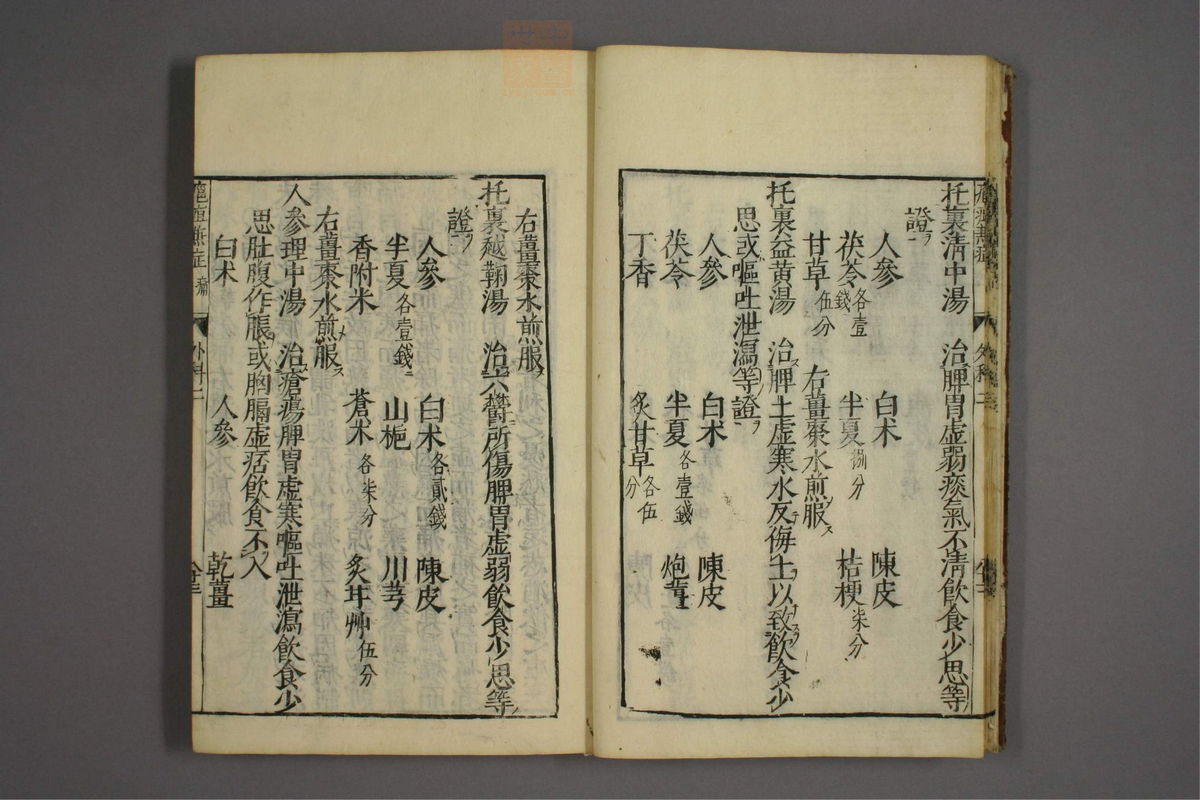 托裏清中湯 治脾胃虚弱痰氣不清飲食少思等
證
人參 白朮 陳皮
茯苓各壹錢 半夏捌分 桔梗柒分
甘草伍分 右薑棗水煎服
托裏益黃湯 治脾土虚寒水反侮土以致飲食少
思或嘔吐泄瀉等證
人參 白朮 陳皮
茯苓 半夏各壹錢 炮薑
丁香 炙甘草各伍分
右薑棗水煎服
托裏越鞠湯 治六鬱所傷脾胃虚弱飲食少思等
證
人參 白朮各貳錢 陳皮
半夏各壹錢 山梔 川芎
香附米 蒼朮各柒分 炙甘艸伍分
右薑棗水煎服
人參理中湯 治瘡瘍脾胃虚寒嘔吐泄瀉飲食少
思肚腹作脹或胸膈虚痞飲食不入
白朮 人參 乾薑
外科二